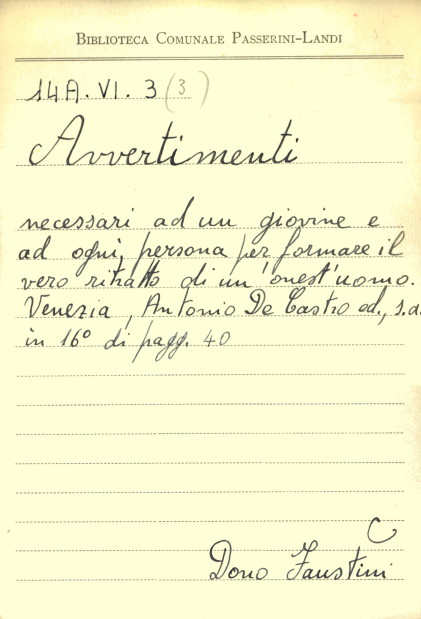 BIBLIOTECA COMUNALE PASSERINI-LANDI
14A. VI. 3 (3)
Avvertimenti
necessari ad un giovine e
ad ogni persona per formare il
vero ritratto di un'onest'uomo.
Venezia, Antonio De Castro ed., s.d.
in 16° di pagg. 40
C
Dono Faustini